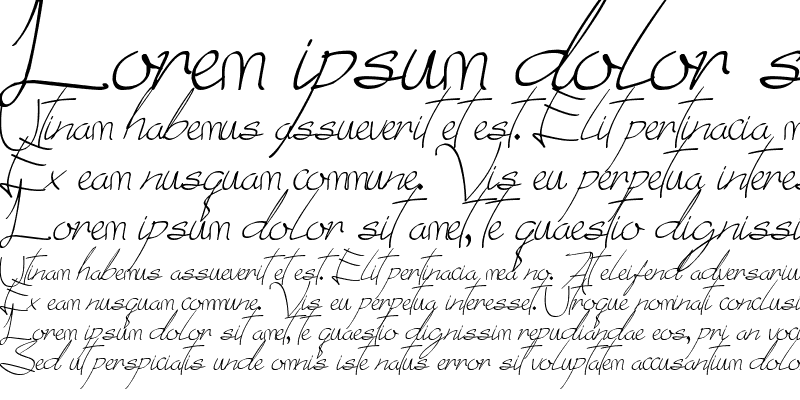 Lorem ipsum dolor s
Utinam habemus assueverit et est. Elit pertinacia m
Ex eam nusquam commune. Vis eu perpetua interes
Lorem ipsum dolor sit amet, te quaestio dignissi
Utinam habemus assueverit et est. Elit pertinacia mea no. At eleifend adversariu
Ex eam nusquam commune. Vis eu perpetua interesset. Utroque nominati conclusi
Lorem ipsum dolor sit amet, te quaestio dignissim repudiandae eos, pri an voc
Sed ut perspiciatis unde omnis iste natus error sit voluptatem accusantium dolo